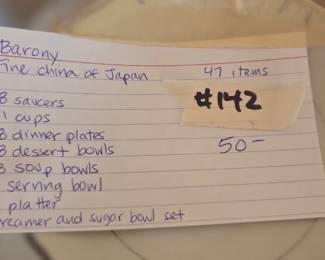 Barony
Fine china of Japan 47 items
#142
8 saucers
1 cups
8 dinner plates
50-
8 dessert bowls
8 soup bowls
serving bowl
platter
reamer and sugar bowl set